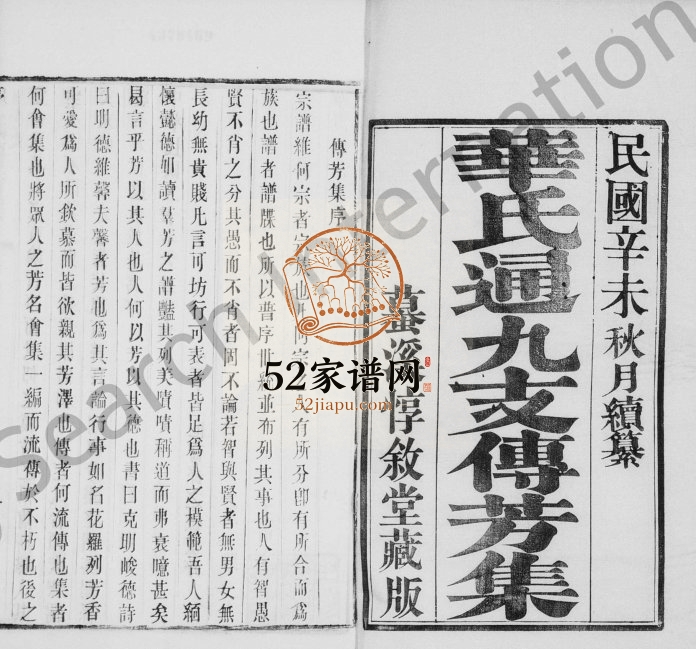 民國辛未秋月續纂
華氏通九支傳芳集
蕩溪惇敘堂藏版
傳芳集序
宗譜維何宗者宗其也所何宗有所分卽有所合而爲
族也譜者譜牒也所以普序世系並布列其事也人有智愚
賢不肖之分其愚而不肖者固不論若智與賢者無男女無
長幼無貴賤凡言可坊行可表者皆足爲人之模範吾人緬
懷懿德如讀羣芳之譜豔其列美嘖嘖稱道而弗衰噫甚矣
曷言乎芳以其人也人何以芳以其德也書曰克明峻德詩
曰明德維馨夫馨者芳也爲其言論行事如名花羅列芳香
可愛爲人所欽慕而皆欲親其芳澤也傳者何流傳也集者
何會集也將眾人之芳名會集一編而流傳於不朽也後之
序
52家谱网
52jiapu.com
Search International